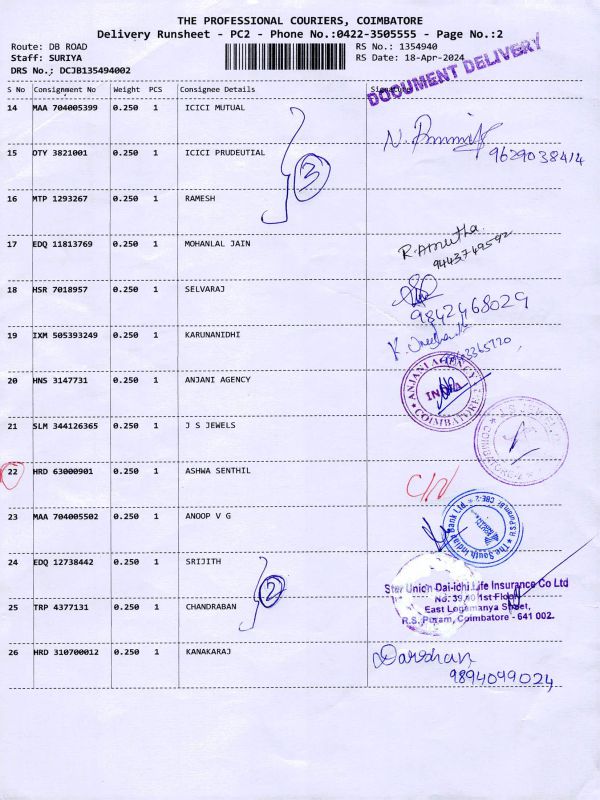 THE PROFESSIONAL COURIERS, COIMBATORE
Delivery Runsheet - PC2 - Phone No.:0422-3505555 - Page No.:2
Route: DB ROAD
RS No.: 1354940
Staff: SURIYA
RS Date: 18-Apr-2024
DRS No.: DCJB135494002
DOCUMENT DELIVERY
S No Consignment No Weight PCS Consignee Details Signature
14 MAA 704005399 0.250 1 ICICI MUTUAL
15 DTY 3821001 0.250 1 ICICI PRUDEUTIAL 9629038414
3
16 MTP 1293267 0.250 1 RAMESH
17 EDQ 11813769 0.250 1 MOHANLAL JAIN R. Ametha
9443749592
18 HSR 7018957 0.250 1 SELVARAJ
9842468029
19 IXM 505393249 0.250 1 KARUNANIDHI
20 HNS 3147731 0.250 1 ANJANI AGENCY ANJANI AGENCY COIMBATORE
21 SLM 344126365 0.250 1 J S JEWELS
22 HRD 63000901 0.250 1 ASHWA SENTHIL
23 MAA 704005502 0.250 1 ANOOP V G The South Indian Bank Ltd. R.S.Puram Br. CBE-2
24 EDQ 12738442 0.250 1 SRIJITH
2
Star Union Dai-ichi Life Insurance Co Ltd
25 TRP 4377131 0.250 1 CHANDRABAN
1st Floor
East Logamanya Street,
R.S. Puram, Coimbatore - 641 002.
26 HRD 310700012 0.250 1 KANAKARAJ Darshan
9894099024